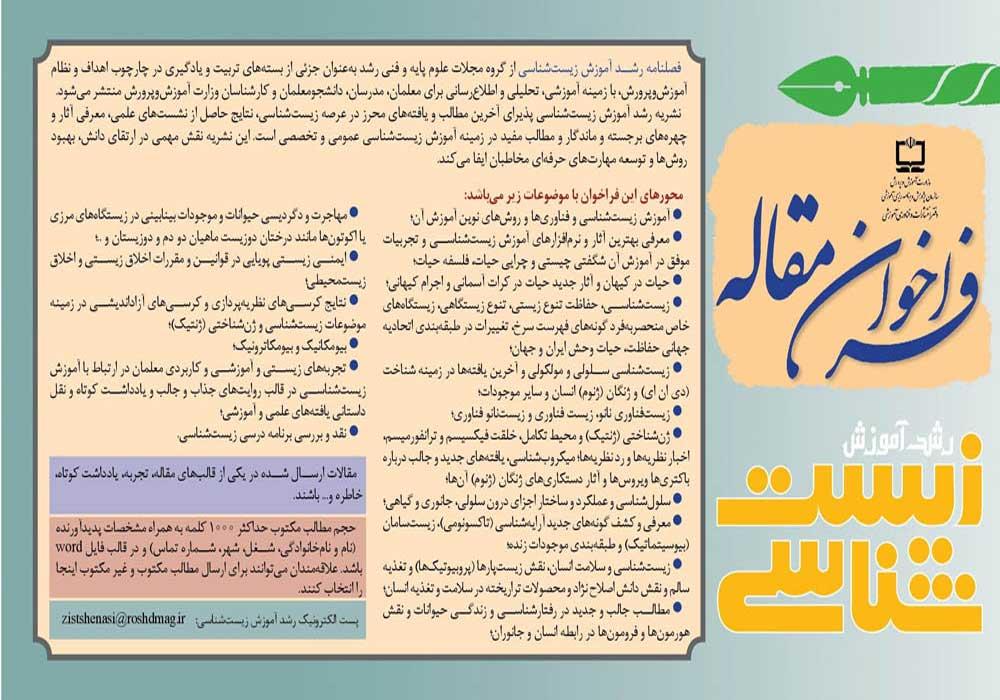 وزارت آموزش و پرورش
سازمان پژوهش و برنامه‌ریزی آموزشی
دفتر انتشارات و فناوری آموزشی
فراخوان مقاله
رشد آموزش
زیست
شناسی
فصلنامه رشد آموزش زیست‌شناسی از گروه مجلات علوم پایه و فنی رشد به‌عنوان جزئی از بسته‌های تربیت و یادگیری در چارچوب اهداف و نظام
آموزش‌وپرورش، با زمینه آموزشی، تحلیلی و اطلاع‌رسانی برای معلمان، مدرسان، دانشجومعلمان و کارشناسان وزارت آموزش‌وپرورش منتشر می‌شود.
نشریه رشد آموزش زیست‌شناسی پذیرای آخرین مطالب و یافته‌های محرز در عرصه زیست‌شناسی، نتایج حاصل از نشست‌های علمی، معرفی آثار و
چهره‌های برجسته و ماندگار و مطالب مفید در زمینه آموزش زیست‌شناسی عمومی و تخصصی است. این نشریه نقش مهمی در ارتقای دانش، بهبود
روش‌ها و توسعه مهارت‌های حرفه‌ای مخاطبان ایفا می‌کند.
محورهای این فراخوان با موضوعات زیر می‌باشد:
● آموزش زیست‌شناسی و فناوری‌ها و روش‌های نوین آموزش آن؛
● معرفی بهترین آثار و نرم‌افزارهای آموزش زیست‌شناسی و تجربیات
موفق در آموزش آن شگفتی چیستی و چرایی حیات، فلسفه حیات؛
● حیات در کیهان و آثار جدید حیات در کرات آسمانی و اجرام کیهانی؛
● زیست‌شناسی، حفاظت تنوع زیستی، تنوع زیستگاهی، زیستگاه‌های
خاص منحصربه‌فرد گونه‌های فهرست سرخ، تغییرات در طبقه‌بندی اتحادیه
جهانی حفاظت، حیات وحش ایران و جهان؛
● زیست‌شناسی سلولی و مولکولی و آخرین یافته‌ها در زمینه شناخت
(دی ان ای) و ژنگان (ژنوم) انسان و سایر موجودات؛
● زیست‌فناوری نانو، زیست فناوری و زیست‌نانو فناوری؛
● ژن‌شناختی (ژنتیک) و محیط تکامل، خلقت فیکسیسم و ترانفورمیسم،
اخبار نظریه‌ها و رد نظریه‌ها؛ میکروب‌شناسی، یافته‌های جدید و جالب درباره
باکتری‌ها ویروس‌ها و آثار دستکاری‌های ژنگان (ژنوم) آن‌ها؛
● سلول‌شناسی و عملکرد و ساختار اجزای درون سلولی، جانوری و گیاهی؛
● معرفی و کشف گونه‌های جدید آرایه‌شناسی (تاکسونومی)، زیست‌سامان
(بیوسیتماتیک) و طبقه‌بندی موجودات زنده؛
● زیست‌شناسی و سلامت انسان، نقش زیست‌یارها (پروبیوتیک‌ها) و تغذیه
سالم و نقش دانش اصلاح نژاد و محصولات تراریخته در سلامت و تغذیه انسان؛
● مطالب جالب و جدید در رفتارشناسی و زندگی حیوانات و نقش
هورمون‌ها و فرومون‌ها در رابطه انسان و جانوران؛
● مهاجرت و دگردیسی حیوانات و موجودات بینابینی در زیستگاه‌های مرزی
یا اکوتون‌ها مانند درختان دوزیست ماهیان دو دم و دوزیستان و ..؛
● ایمنی زیستی پویایی در قوانین و مقررات اخلاق زیستی و اخلاق
زیست‌محیطی؛
● نتایج کرسی‌های نظریه‌پردازی و کرسی‌های آزاداندیشی در زمینه
موضوعات زیست‌شناسی و ژن‌شناختی (ژنتیک)؛
● بیومکانیک و بیومکاترونیک؛
● تجربه‌های زیستی و آموزشی و کاربردی معلمان در ارتباط با آموزش
زیست‌شناسی در قالب روایت‌های جذاب و جالب و یادداشت کوتاه و نقل
داستانی یافته‌های علمی و آموزشی؛
● نقد و بررسی برنامه درسی زیست‌شناسی.
مقالات ارسال شده در یکی از قالب‌های مقاله، تجربه، یادداشت کوتاه،
خاطره و... باشند.
حجم مطالب مکتوب حداکثر ۱۰۰۰ کلمه به همراه مشخصات پدیدآورنده
(نام و نام‌خانوادگی، شغل، شهر، شماره تماس) و در قالب فایل word
باشد. علاقه‌مندان می‌توانند برای ارسال مطالب مکتوب و غیر مکتوب اینجا
را انتخاب کنند.
پست الکترونیک رشد آموزش زیست‌شناسی: zistshenasi@roshdmag.ir